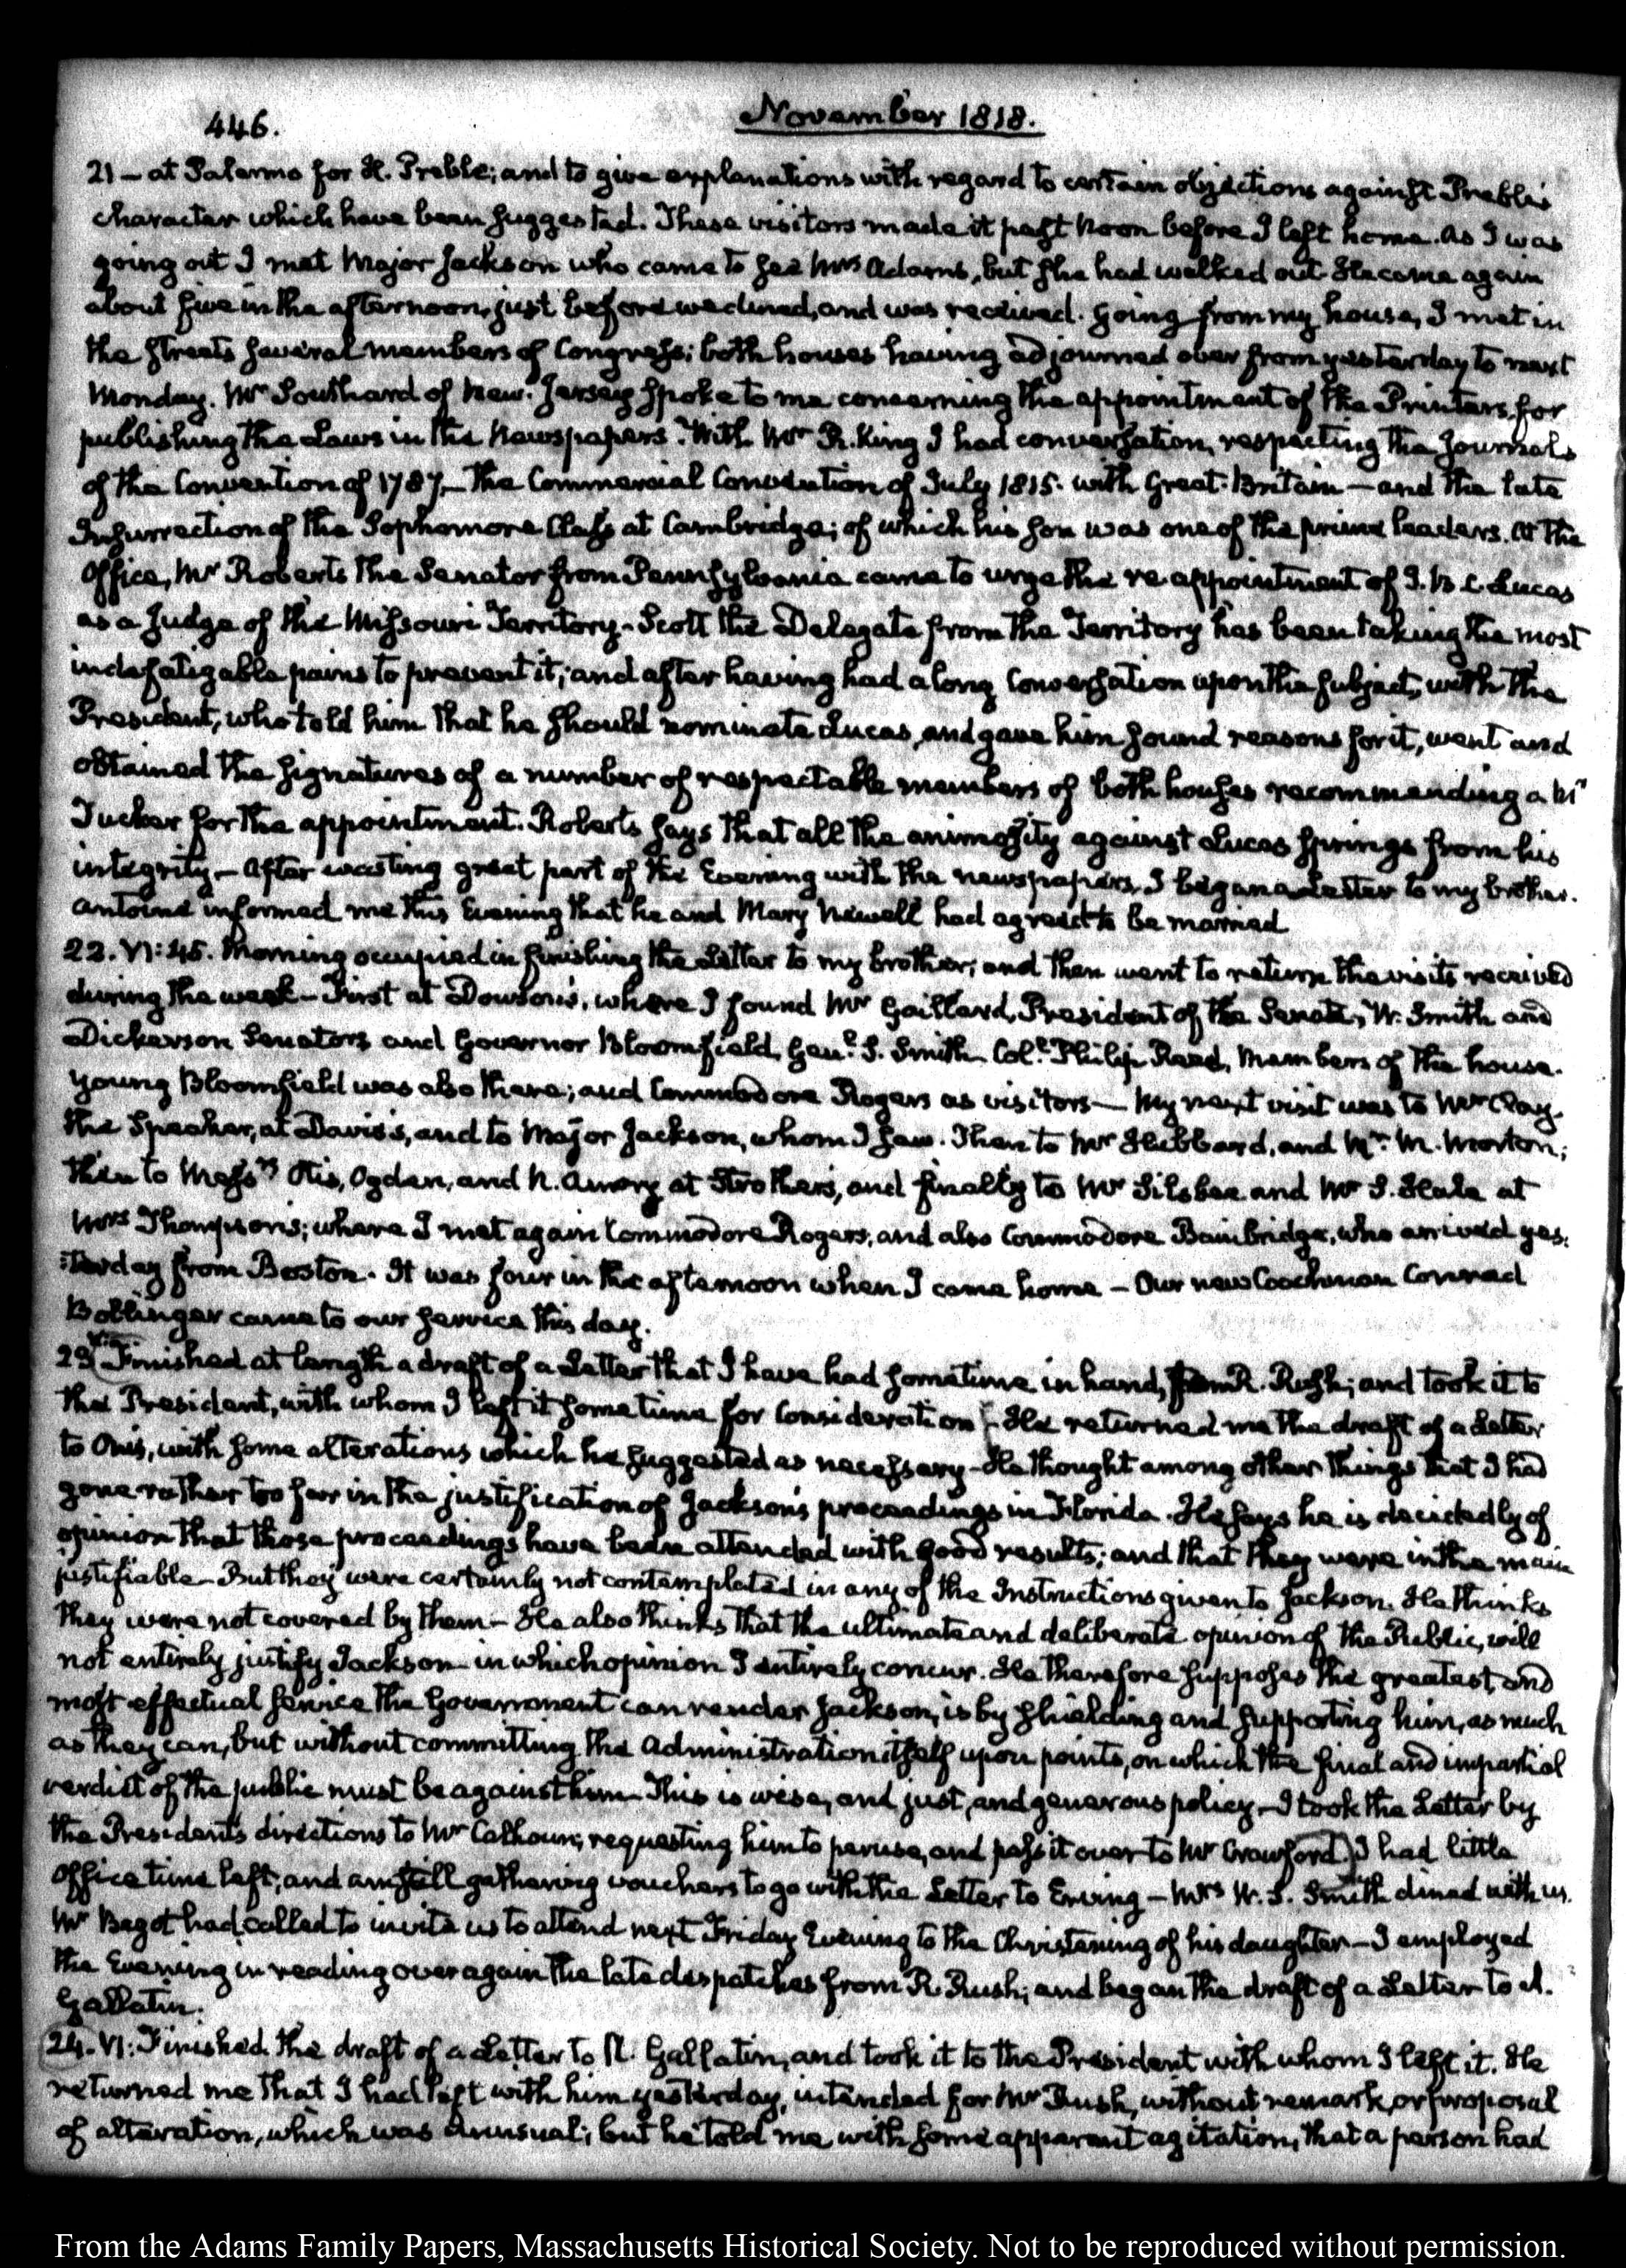 446.
November 1818.
21 – at Palermo for H. Preble; and to give explanations with regard to certain objections against Preble's
character which have been suggested. These visitors made it past Noon before I left home. As I was
going out I met Major Jackson who came to see Mrs Adams, but she had walked out. He came again
about five in the afternoon, just before we dined, and was received. Going from my house, I met in
the streets several members of Congress; both houses having adjourned over from yesterday to next
Monday. Mr Southard of New-Jersey spoke to me concerning the appointment of the Printers, for
publishing the Laws in the Newspapers. With Mr R. King I had conversation, respecting the Journals
of the Convention of 1787 – The Commercial Convention of July 1815. with Great-Britain – and the late
Insurrection of the Sophomore Class at Cambridge; of which his son was one of the prime leaders. At the
Office, Mr Roberts the Senator from Pennsylvania came to urge the re-appointment of J. B. C. Lucas
as a Judge of the Missouri Territory – Scott the Delegate from the Territory has been taking the most
indefatigable pains to prevent it; and after having had a long Conversation upon the subject, with the
President, who told him that he should nominate Lucas, and gave him sound reasons for it, went and
obtained the signatures of a number of respectable members of both houses recommending a Mr
Tucker for the appointment. Roberts says that all the animosity against Lucas springs from his
integrity – After wasting great part of the Evening with the newspapers, I began a Letter to my brother.
Antoine informed me this Evening that he and Mary Newell had agreed to be married
22. VI:45. Morning occupied in finishing the Letter to my brother; and then went to return the visits received
during the week – First at Dowson's, where I found Mr Gaillard, President of the Senate, W. Smith and
Dickerson Senators and Governor Bloomfield, Genl. S. Smith Coll. Philip Reed, Members of the house.
Young Bloomfield was also there; and Commodore Rogers as visitors – My next visit was to Mr Clay.
the Speaker, at Davis's, and to Major Jackson, whom I saw. Then to Mr Hubbard, and Mr. M. Morton;
then to Messrs Otis, Ogden, and N. Amory at Strother's, and finally to Mr Silsbee and Mr S. Hale at
Mrs Thompson's; where I met again Commodore Rogers, and also Commodore Bainbridge, who arrived yes:
:terday from Boston. It was four in the afternoon when I came home – Our new Coachman Conrad
Bollinger came to our service this day.
23 Finished at length a draft of a Letter that I have had sometime in hand, R. Rush; and took it to
the President, with whom I left it sometime for Consideration – He returned me the draft of a Letter
to Onis, with some alterations which he suggested as necessary – He thought among other things that I had
gone rather too far in the justification of Jackson's proceedings in Florida. He says he is decidedly of
opinion that those proceedings have been attended with good results; and that they were in the main
justifiable – But they were certainly not contemplated in any of the Instructions given to Jackson. He thinks
they were not covered by them – He also thinks that the ultimate and deliberate opinion of the Public, will
not entirely justify Jackson – in which opinion I entirely concur. He therefore supposes the greatest, and
most effectual service the Government can render Jackson, is by shielding and supporting him, as much
as they can, but without committing the Administration itself upon points, on which the final and impartial
verdict of the public must be against him – This is wise, and just, and generous policy – I took the Letter by
the President's directions to Mr Calhoun; requesting him to peruse, and pass it over to Mr Crawford. I had little
Office time left, and am still gathering vouchers to go with the Letter to Erving – Mrs W. S. Smith dined with us.
Mr Bagot had called to invite us to attend next Friday Evening to the Christening of his daughter – I employed
the Evening in reading over again the late despatches from R. Rush; and began the draft of a Letter to A.
Gallatin.
24. VI: Finished the draft of a Letter to A. Gallatin, and took it to the President with whom I left it. He
returned me that I had left with him yesterday, intended for Mr Rush, without remark, or proposal
of alteration, which was unusual; but he told me with some apparent agitation, that a person had
From the Adams Family Papers, Massachusetts Historical Society. Not to be reproduced without permission.